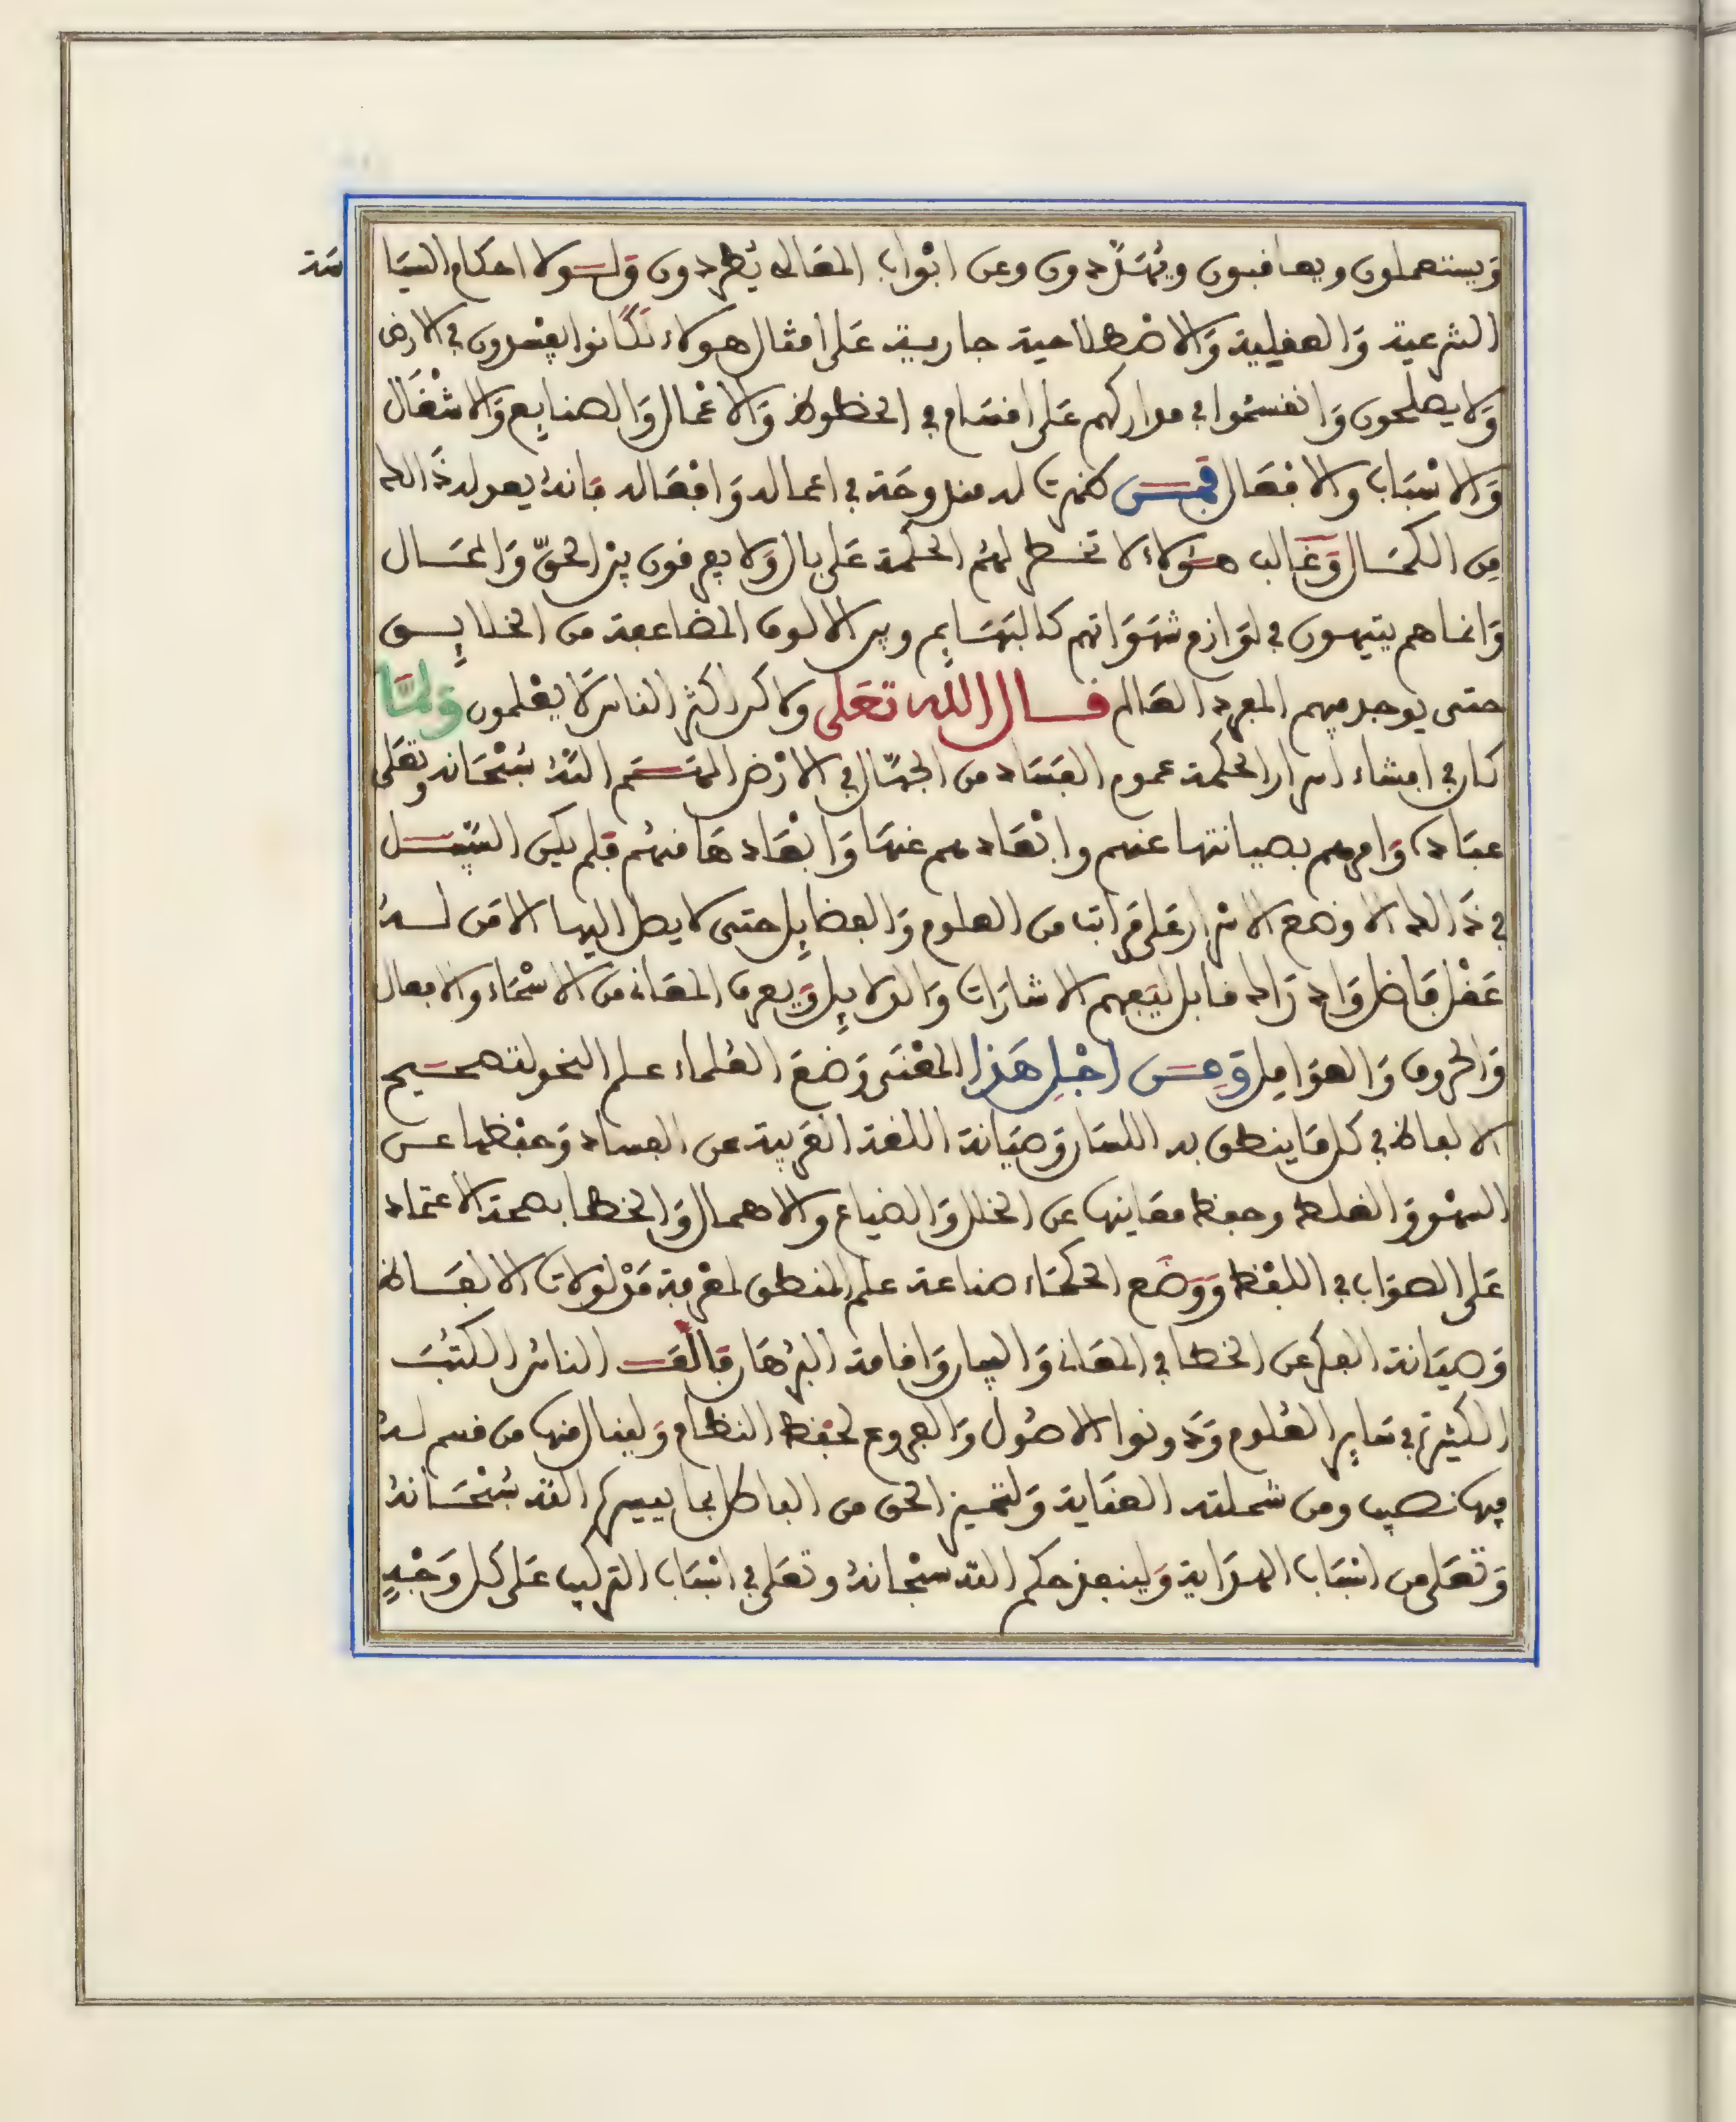 وَيستعملون ويعاقبون ويُشَرَّدون وعن ابْواب المَعَالي يُطردون وَلــولا احكام السيَاسَة
الشرعية وَالعقلية وَالاصْطلاحية جارية عَلى امثال هولاء لكَانوا يفسدون في الارض
وَلا يصلحون وَانقسمُوا في مداركهم عَلى اقسَام في الحظوظ وَالاعْمال وَالصنايع وَالاشْغَال
وَالاسْبَاب والافعَال فمَــن ظهرت له مندوحَة في اعماله وَافعَاله فانهُ يعد له ذَالك
مِن الكمَــال وَغَالب هــؤلاء لا تخــطر لهُم الحكمة عَلى بال وَلا يعرفون بين الحقّ وَالمحَــال
وَانما هم يتيهون في لوَازم شهَوَاتهم كالبهَايم وبين الالوف المضاعفة من الخلايِــق
حتى يوجد فيهم المفرد العَالم قــال الله تعَلى ولاكن اكثر الناس لا يعْلمون وَلمَّا
كان في افشاء اسرار الحكمة عموم الفَسَاد من الجهّال في الارْض الهمَــهم اللهُ سُبْحَانه وتعَلى
عبَاده وَامرهم بصيانتها عنهم وابْعَادهم عنهَا وَابْعَادهَا منهُم فلم يكن السَّبيــل
في ذَالك الا وضع الاسْرار عَلى مَراتب من العلوم وَالفضايِل حتى لا يصل اليها الا مَن لــهُ
عَقْل فَاضل وَادرَاك قابل ليَفهم الاشارَات وَالدلايِل وَيعرف المعَاني من الاسْمَاء والافعال
وَالحروف وَالعوَامِل وَمِــن اجْلِ هَذا المعْنَى وَضعَ العُلماء علم النحو لتصحــيح
الالفاظ في كل مَا ينطق به اللسَان وَصيَانة اللغة العَربية عن الفساد وَحفْظها عــن
السهْو وَالغلط وحفظ معَانيها عن الخلل وَالضياع والاهمال وَالخطا بصحة الاعتمَاد
عَلى الصوَاب في اللفْظ وَوضَع الحكمَاء صناعة علم المنطق لمعْرفة مَدْلولات الالفَــاظ
وَصيَانة الفكر عن الخطا في المعَاني وَالبيان وَاقامة البرْهَان فالَّفَــ الناسُ الكتُبَ
الكثيرة في سَاير العُلوم وَدَونوا الاصُول وَالفروع لحفْظ النظَام وَلينال منها من قسم لــهُ
فيها نصيب ومن شملته العنَاية وَلتمييز الحق من الباطل بما ييسره اللهُ سُبْحَــانهُ
وَتعَلى من اسْبَاب الهدَاية وَلينفذ حكم الله سبْحانهُ وتعَلى في اسْبَاب التركيب عَلى كل وَجْهٍ